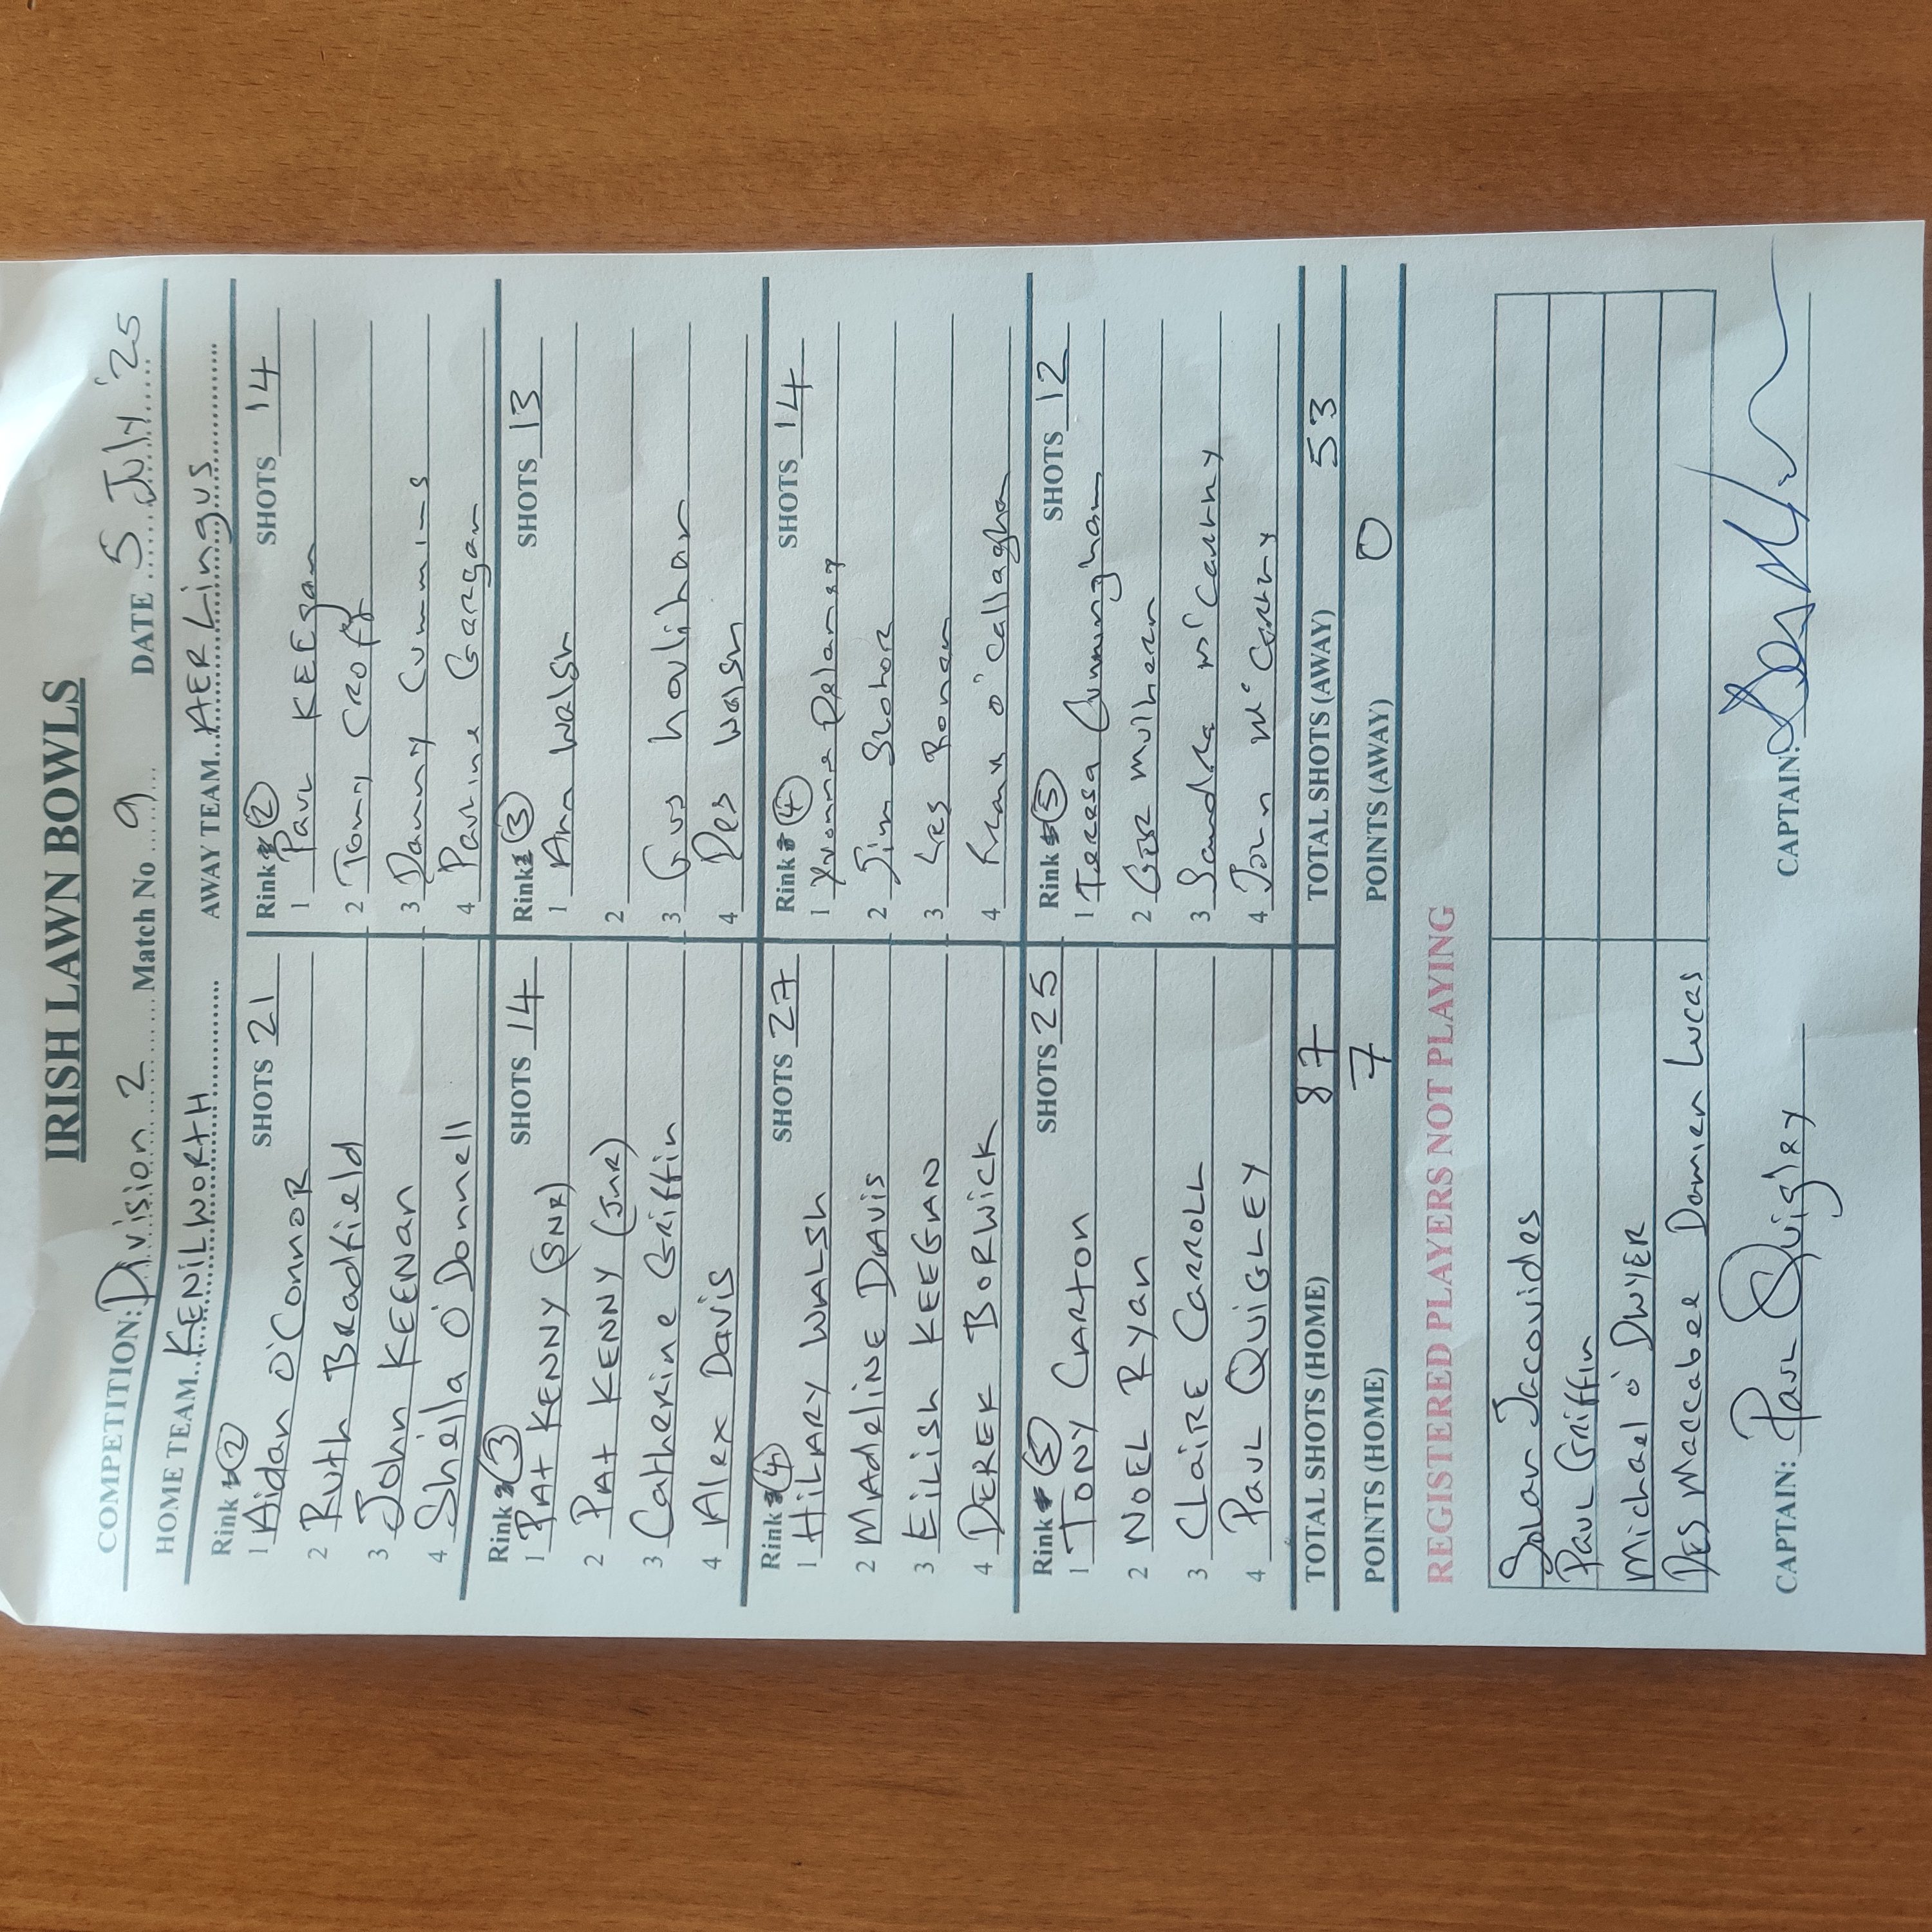 IRISH LAWN BOWLS
COMPETITION: Division 2 Match No 9 DATE 5 July '25
HOME TEAM KENILWORTH AWAY TEAM AER Lingus
Rink (2) SHOTS 21 Rink (2) SHOTS 14
1 Aidan O'Connor 1 Paul KEEgan
2 Ruth Bradfield 2 Tommy Croft
3 John KEENan 3 Danny Cummins
4 Sheila O'Donnell 4 Pauline Geargan
Rink (3) SHOTS 14 Rink (3) SHOTS 13
1 PAt KENNY (SNR) 1 Ann Walsh
2 PAt KENNY (JNR) 2
3 Catherine Griffin 3 Gus houlihan
4 Alex Davis 4 Des Walsh
Rink (4) SHOTS 27 Rink (4) SHOTS 14
1 HiLARY WALSh 1 Yvonne Delaney
2 MAdeLINE DAVis 2 Jim
3 EiLish KEEGAN 3 Les Ronan
4 DEREK BORWICK 4 Frank O'Callaghan
Rink (5) SHOTS 25 Rink (5) SHOTS 12
1 TONY CARTON 1 Teresa Cunningham
2 NOEL RYan 2 Ger Mulhern
3 CLAiRE CARROLL 3 Sandra McCarthy
4 PAUL QUiGLEY 4 John McCarthy
TOTAL SHOTS (HOME) 87 TOTAL SHOTS (AWAY) 53
POINTS (HOME) 7 POINTS (AWAY) 0
REGISTERED PLAYERS NOT PLAYING
Jacovides
Paul Griffin
Michael O'DWYER
Des Maccabee Damien Lucas
CAPTAIN: Paul Quigley CAPTAIN: